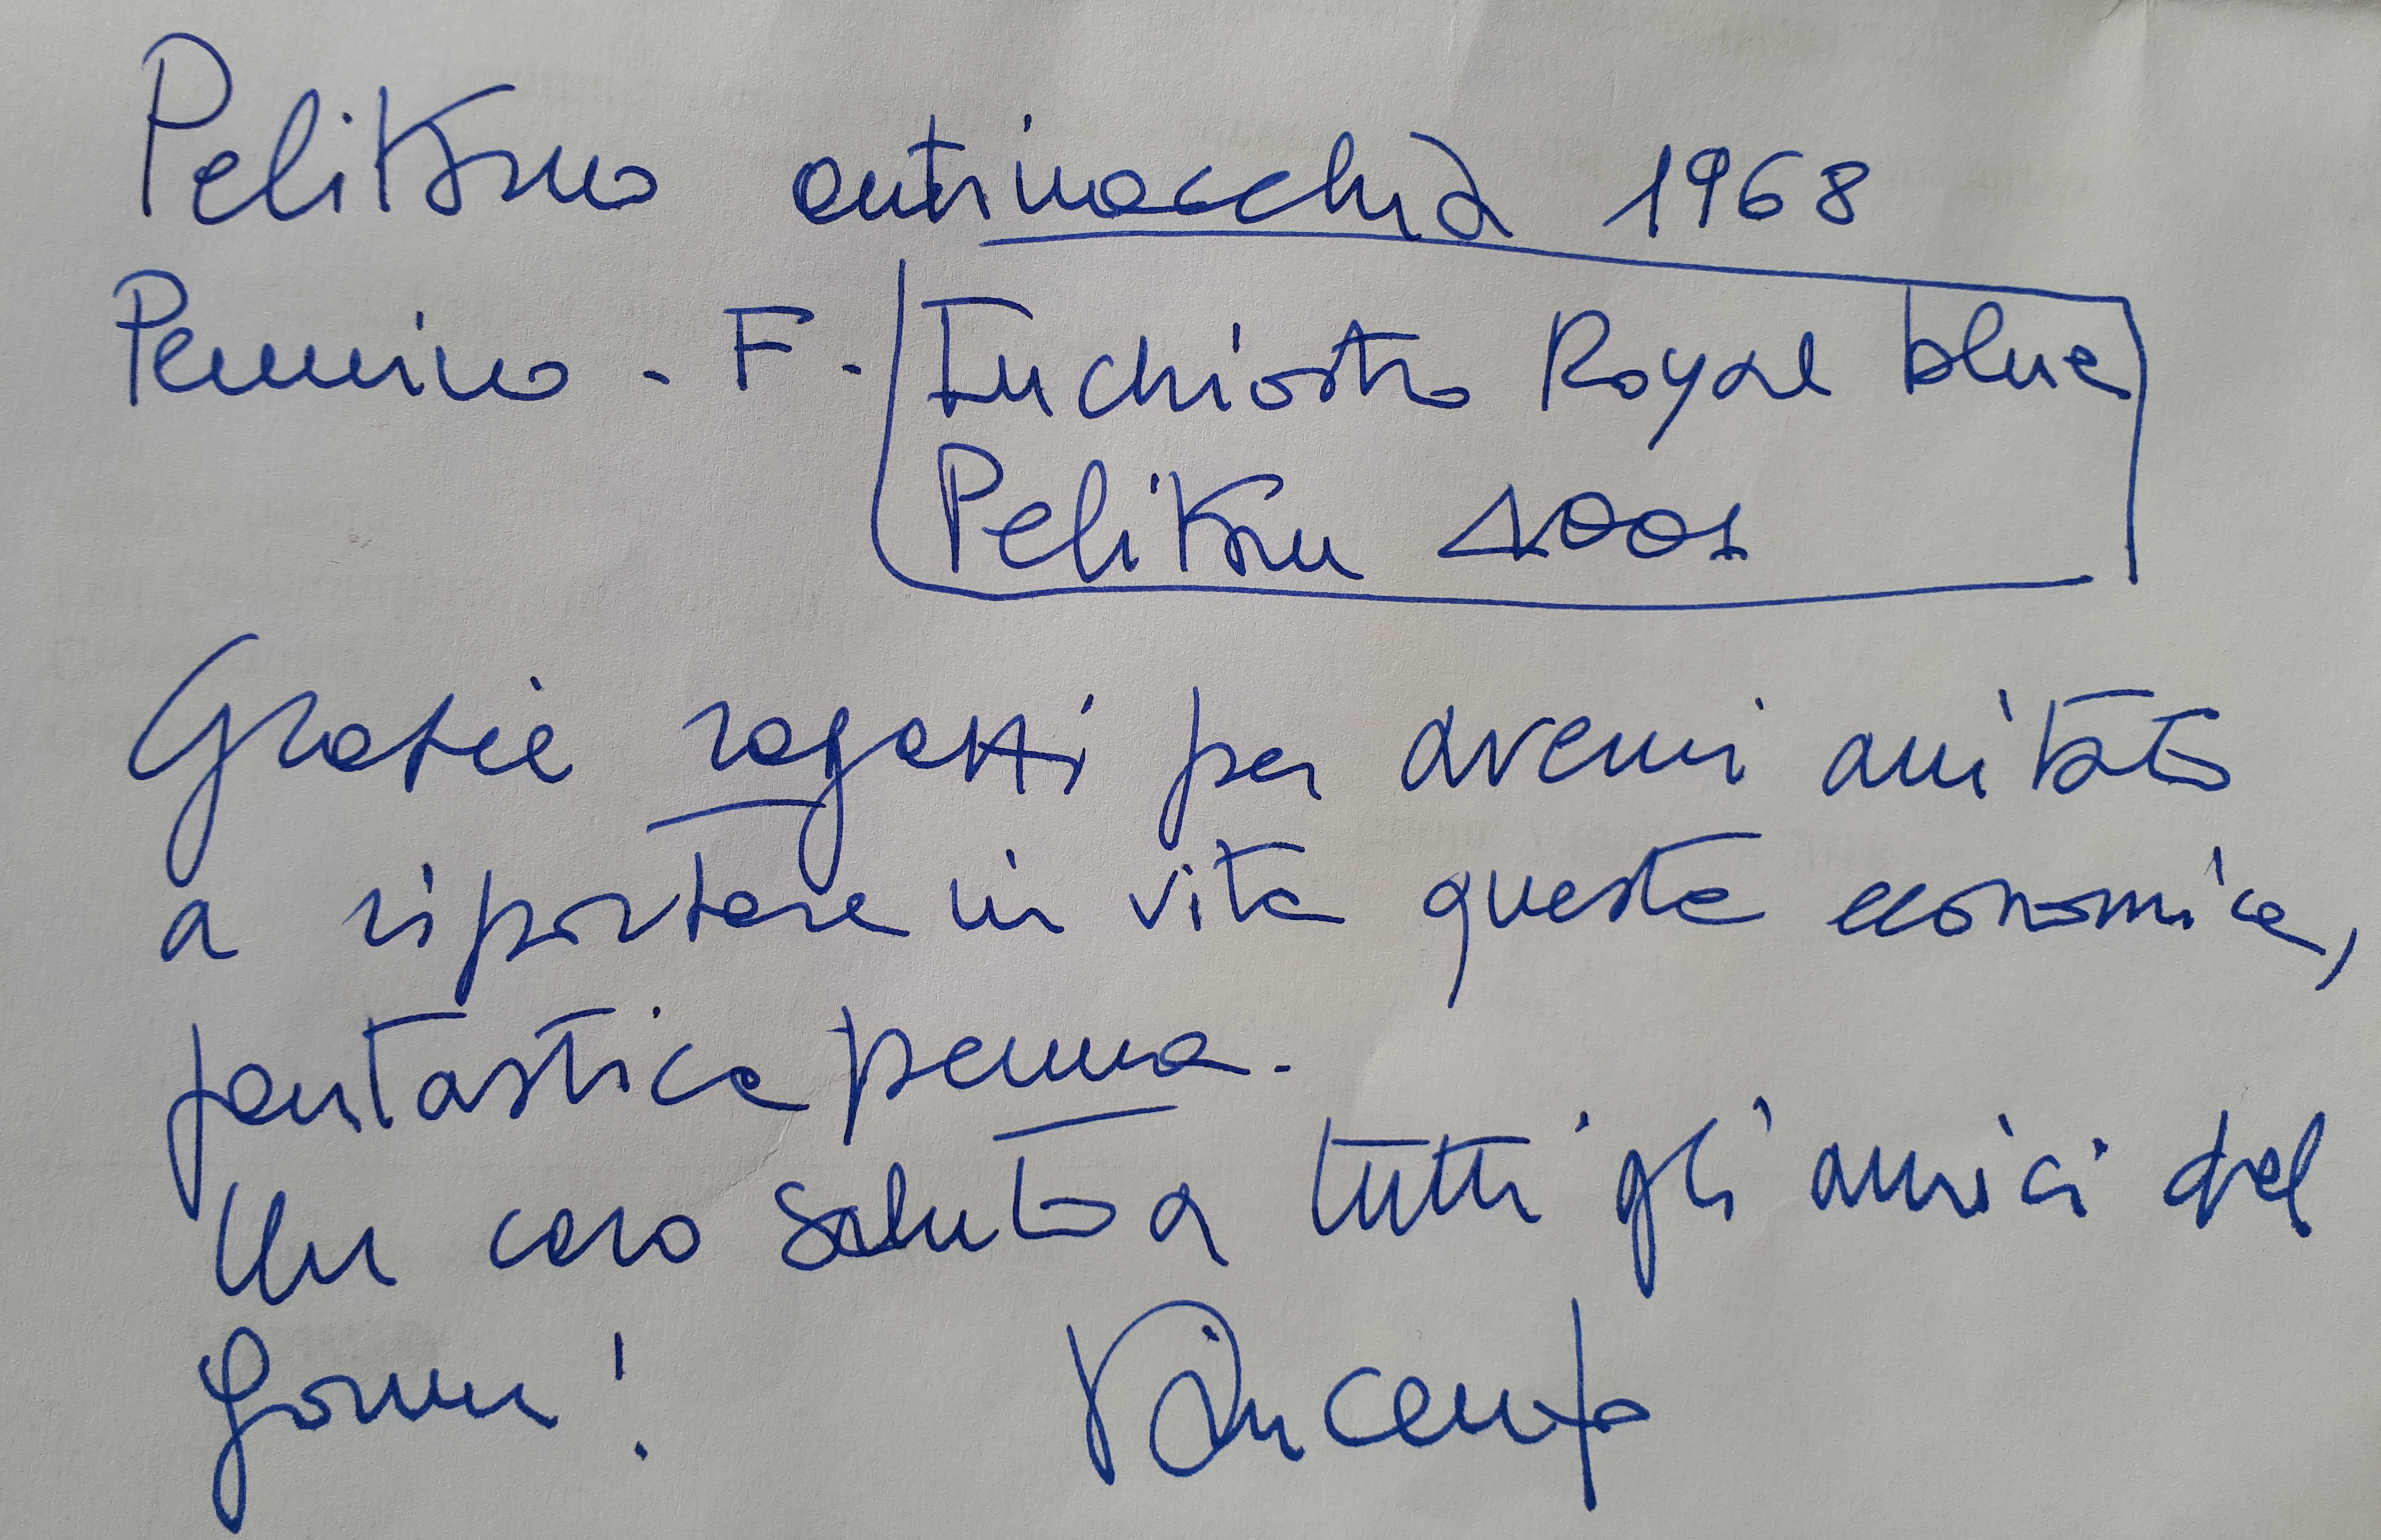 Pelikano antimacchia 1968
Pennino - F. Inchiostro Royal blue
Pelikan 4001
Grazie ragazzi per avermi aiutato
a riportare in vita questa economica,
fantastica penna.
Un caro saluto a tutti gli amici del
Forum!
Vincenzo